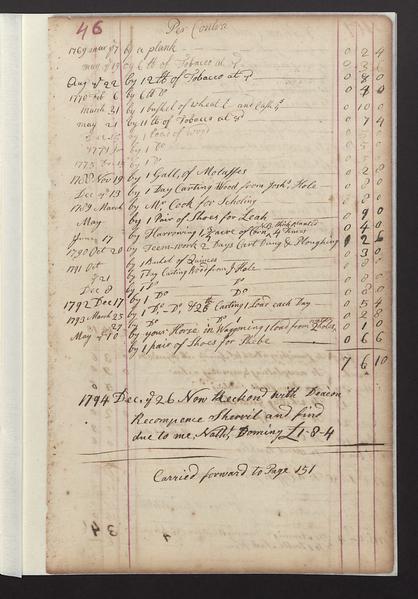 46 Per Contra
1769 by a plank 0 2 4
may 19 by 6 lb of Tobacco at 0 3
Aug ye 22 by 12 lb of Tobacco at 0 8 0
1770 Feb 6 by 6 lb Do 0 4 0
March 31 by 1 bushel of wheat & and Cash 0 10 0
may 21 by 11 lb of Tobacco at 0 7 4
by 1 Load of Wood
1771 by 1 Do
1775 by 1 Do
1788 Nov 19 by 1 Gall. of Molasses 0 2 8
Dec ye 13 by 1 Day Carting Wood from Josh. Hole 0 8 0
1789 March by Mr Cook for Scholing 0 8 0
May by 1 Pair of Shoes for Leah 0 9 0
June 17 by Harrowing 1/2 acre of Corn 4 Times 0 4 0
1790 Oct 20 by Teem-work 2 Days Cart Dung & Ploughing 1 2 6
1791 Oct by 1 Bushel of Quinces 0 3 0
ye 21 by 1 Day Carting Wood from J Hole 0 8 0
Dec 8 by 1 Do Do 0 8 0
1792 Dec 17 by 1 Do Do 0 8 0
1793 March 25 by 1 Do Do & 26th Carting 1 Load each Day 0 5 4
27 by Do Do 1 0 2 8
May ye 10 by your Horse in Waggoning 1 load from 0 1 0
by 1 pair of Shoes for Phebe 0 6 6
7 6 10
1794 Dec. ye 26 Now Reckond with Deacon
Recompence Shervil and find
due to me, Nathl. Dominy £1-8-4
Carried forward to Page 151